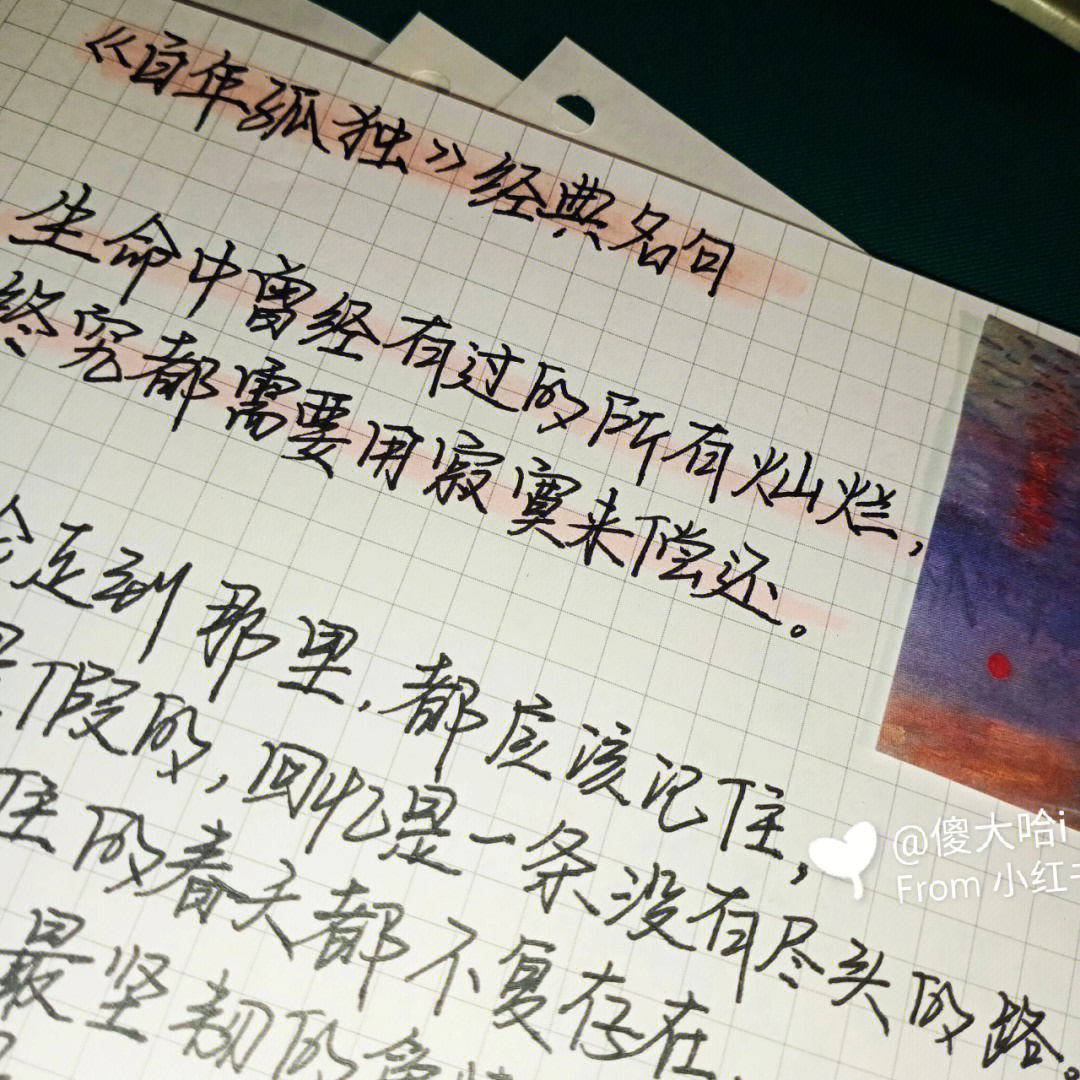 《百年孤独》经典名句
生命中曾经有过的所有灿烂,
终究都需要用寂寞来偿还。
会走到那里,都应该记住,
假的,回忆是一条没有尽头的路。
的春天都不复存在,
最坚韧的
@傻大哈i
From 小红